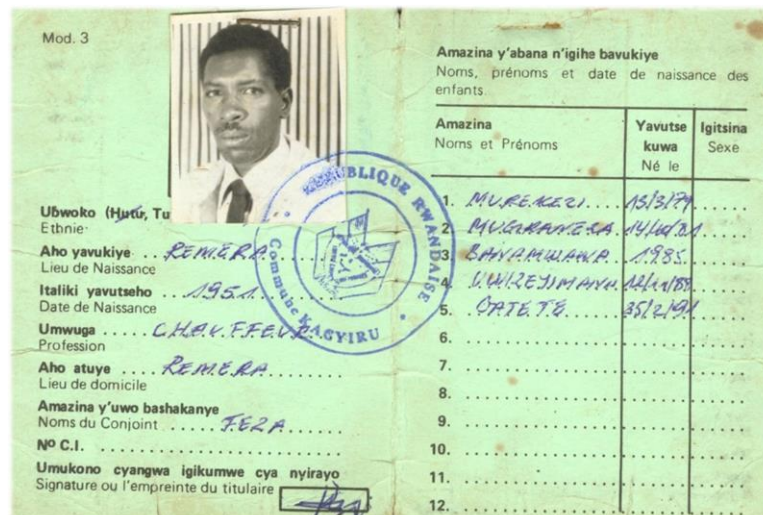 Mod. 3
Ubwoko (Hutu, Tu
Ethnie
Aho yavukiye REMERA
Lieu de Naissance
Italiki yavutseho 1951
Date de Naissance
Umwuga CHAUFFEUR
Profession
Aho atuye REMERA
Lieu de domicile
Amazina y'uwo bashakanye
Noms du Conjoint FEZA
Nº C.I.
Umukono cyangwa igikumwe cya nyirayo
Signature ou l'empreinte du titulaire
REPUBLIQUE RWANDAISE
Commune KACYIRU
Amazina y'abana n'igihe bavukiye
Noms, prénoms et date de naissance des
enfants
Amazina Yavutse Igitsina
Noms et Prénoms kuwa Sexe
Né le
1. MUREKEZI 15/3/79
2. MUGIRANEZA
3. 1985
4. UWIREYIMANA
5. GATETE
6.
7.
8.
9.
10.
11.
12.